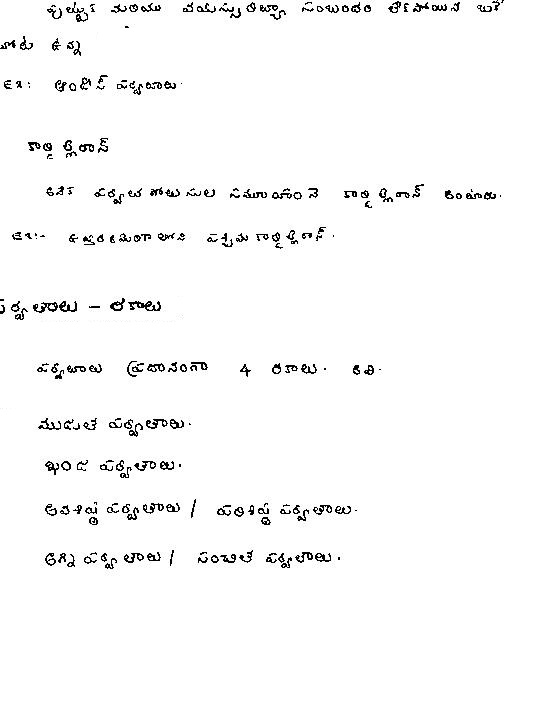 పుట్టుక మరియు వయస్సు రిత్యా సంబంధం లేకపోయిన ఒకే
చోట ఉన్న
ఉదా: ఆండీస్ పర్వతాలు.
కార్డిల్లెరాస్
అనేక పర్వత వరుసల సమూహాంనె కార్డిల్లెరాస్ అంటారు.
ఉదా:- ఉత్తర అమెరికా లోని పశ్చిమ కార్డిల్లెరాస్.
పర్వతాలు – రకాలు
పర్వతాలు ప్రధానంగా 4 రకాలు. అవి.
ముడుత పర్వతాలు.
ఖండ పర్వతాలు.
అవశిష్ఠ పర్వతాలు / పరిశిష్ఠ పర్వతాలు.
అగ్ని పర్వతాలు / సంచిత పర్వతాలు.